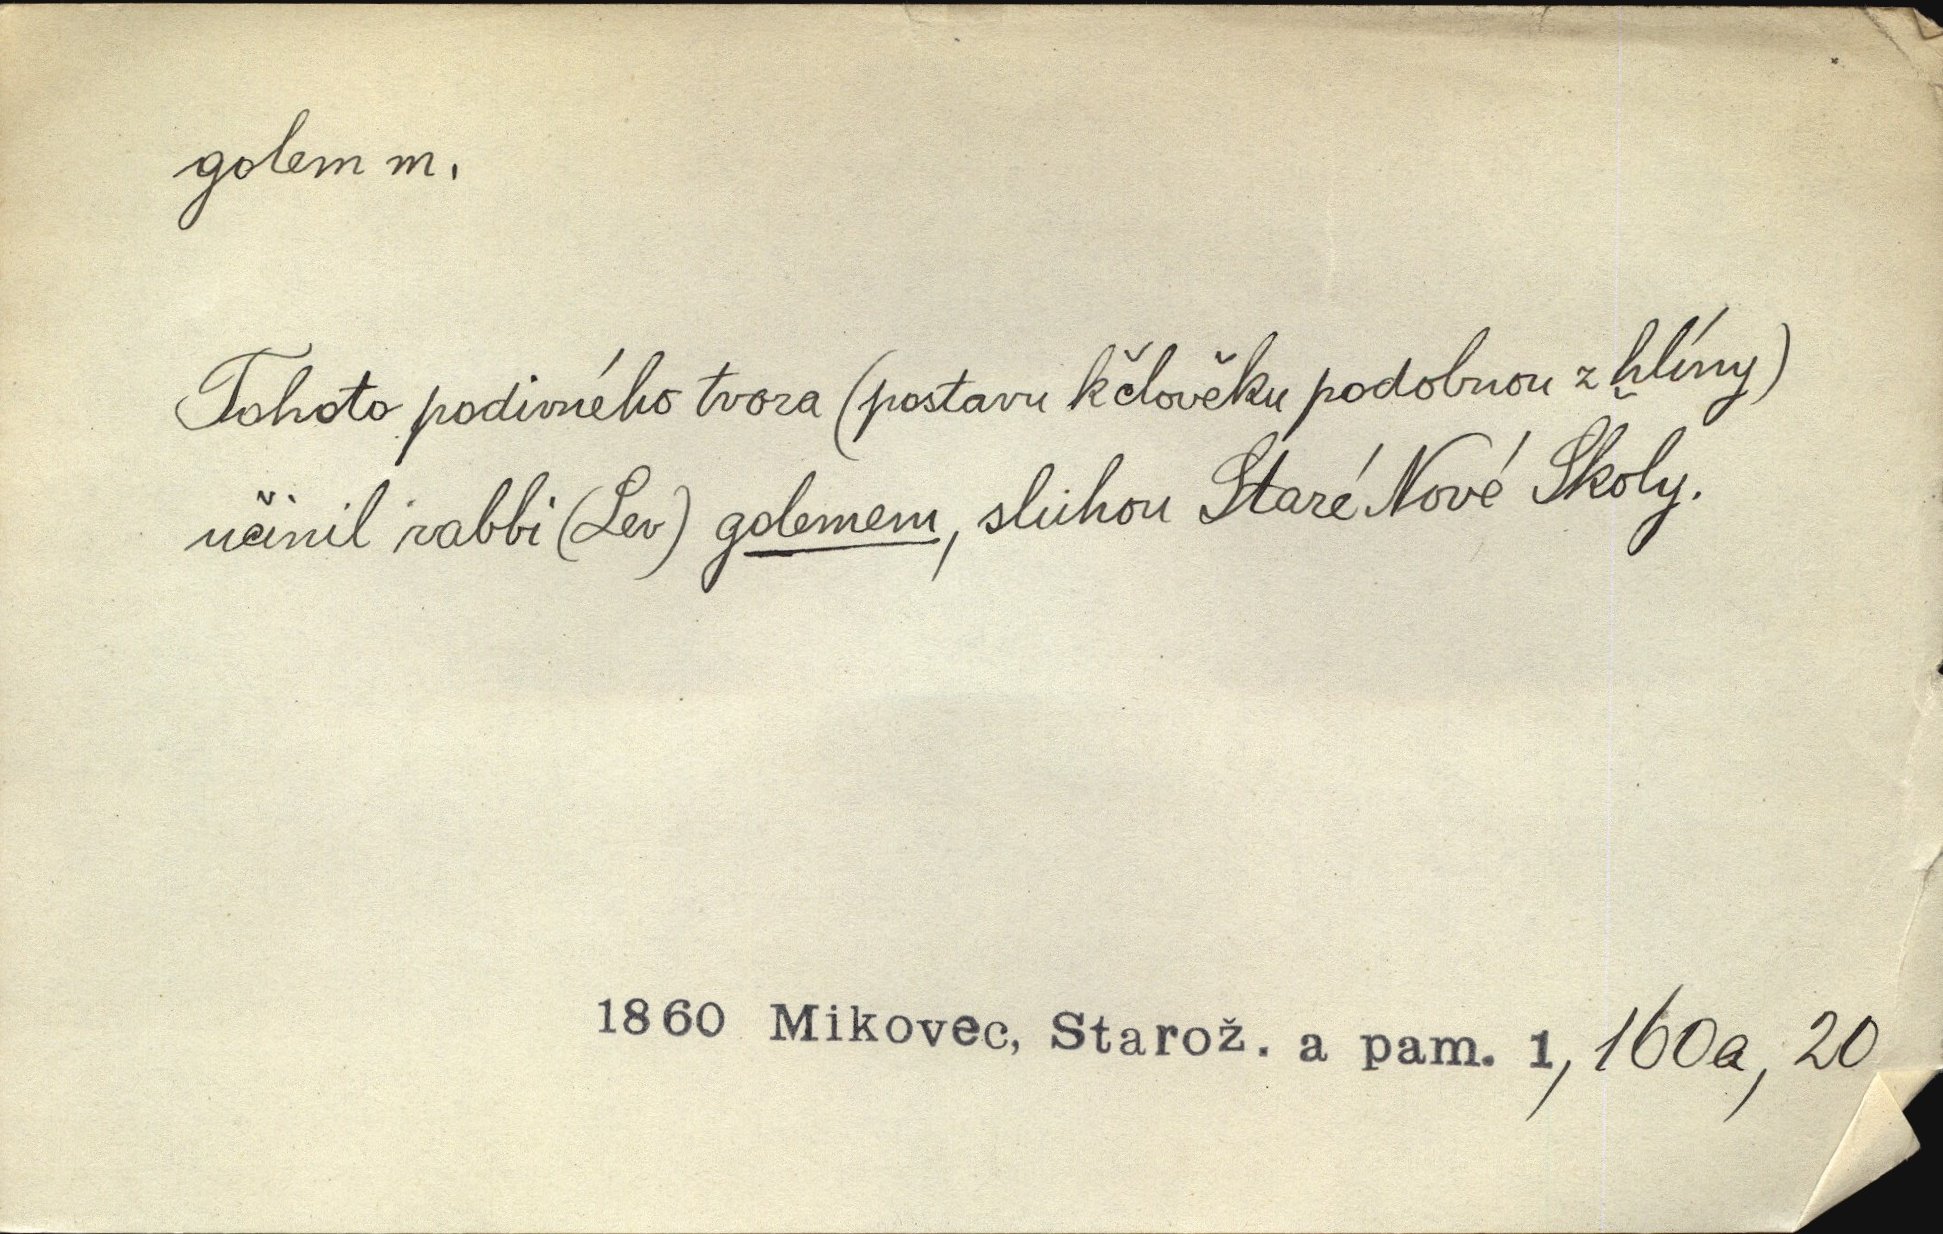 golem m.
Tohoto podivného tvora (postavu k člověku podobnou z hlíny)
učinil rabbi (Lev) golemem, sluhou Staré Nové Školy.
1860 Mikovec, Starož. a pam. 1, 160a, 20